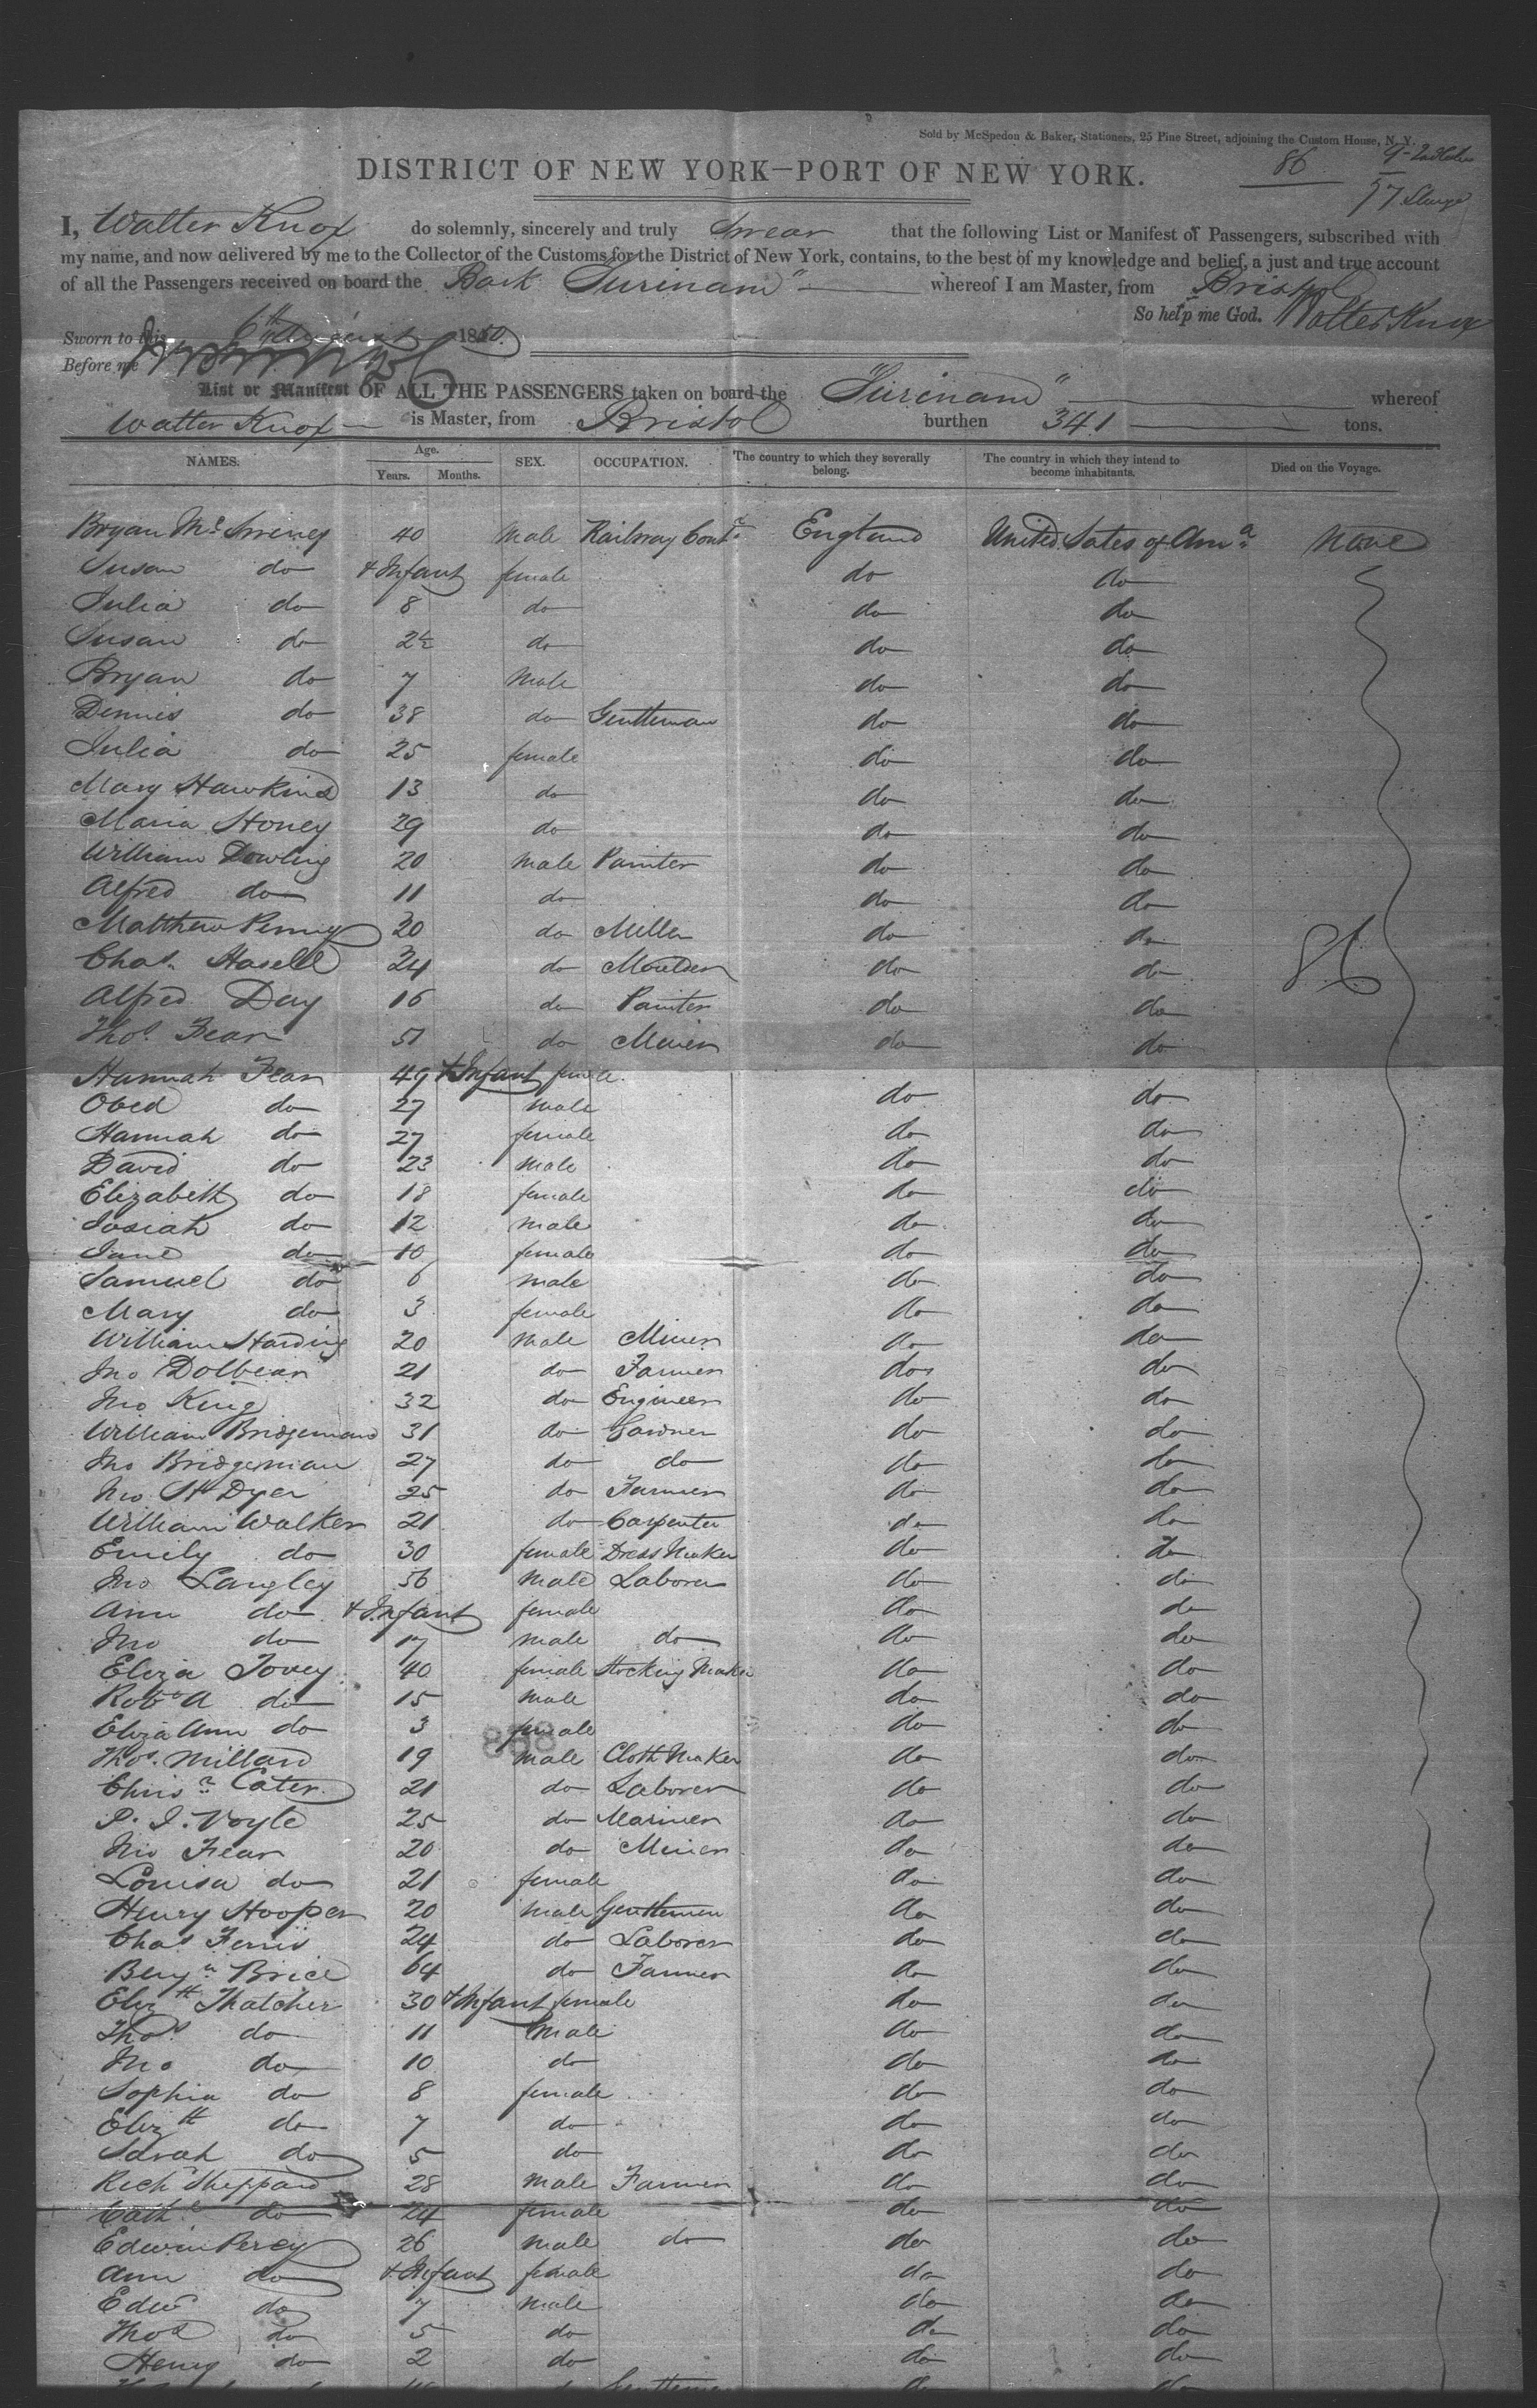 Sold by McSpedon & Baker, Stationers, 25 Pine Street, adjoining the Custom House, N. Y.
86
DISTRICT OF NEW YORK—PORT OF NEW YORK.
57
I, Walter Knox do solemnly, sincerely and truly Swear that the following List or Manifest of Passengers, subscribed with
my name, and now delivered by me to the Collector of the Customs for the District of New York, contains, to the best of my knowledge and belief, a just and true account
of all the Passengers received on board the Bark "Surinam" whereof I am Master, from Bristol
So help me God. Walter Knox
Sworn to this 6th August 1850
Before me
List or Manifest OF ALL THE PASSENGERS taken on board the "Surinam" whereof
Walter Knox is Master, from Bristol burthen 341 tons.
NAMES. Age. Years. Months. SEX. OCCUPATION. The country to which they severally belong. The country in which they intend to become inhabitants. Died on the Voyage.
Bryan Mc Sweney 40 Male Railway Contr England United States of Ama None
Susan do & Infant female do do
Julia do 8 do do do
Susan do 2½ do do do
Bryan do 7 Male do do
Dennis do 38 do Gentleman do do
Julia do 25 female do do
Mary Hawkins 13 do do do
Maria Honey 29 do do do
William Dowling 20 male Painter do do
Alfred do 11 do do do
Matthew Penny 30 do Miller do do
Chas. Hasell 24 do Moulder do do
86
Alfred Day 16 do Painter do do
Thos. Fear 51 do Miner do do
Hannah Fear 49 & Infant female
Obed do 27 male do do
Hannah do 27 female do do
David do 23 male do do
Elizabeth do 18 female do do
Josiah do 12 male do do
Jane do 10 female do do
Samuel do 6 male do do
Mary do 3 female do do
William Harding 20 male Miner do do
Jno Dolbear 21 do Farmer do do
Jno King 32 do Engineer do do
William Bridgeman 31 do Gardner do do
Jno Bridgeman 27 do do do do
Jno H Dyer 25 do Farmer do do
William Walker 21 do Carpenter do do
Emily do 30 female Dress Maker do do
Jno Langley 56 male Laborer do do
Ann do & Infant female do do
Jno do 17 male do do do
Eliza Tovey 40 female Stocking Maker do do
Robt A do 15 male do do
Eliza Ann do 3 female do do
868
Thos. Millard 19 male Cloth Maker do do
Chrisr. Cater 21 do Laborer do do
P. J. Voyle 25 do Mariner do do
Jno Fear 20 do Miner do do
Louisa do 21 female do do
Henry Hooper 20 male Gentleman do do
Chas Ferris 24 do Laborer do do
Benjn Brice 64 do Farmer do do
Elizth Thatcher 30 & Infant female do do
Thos. do 11 Male do do
Jno do 10 do do do
Sophia do 8 female do do
Elizth do 7 do do do
Sarah do 5 do do do
Richd Sheppard 28 male Farmer do do
Cathe do 24 female do do
Edwin Percy 26 male do do do
Ann do & Infant female do do
Edwd do 7 male do do
Thos do 5 do do do
Henry do 2 do do do